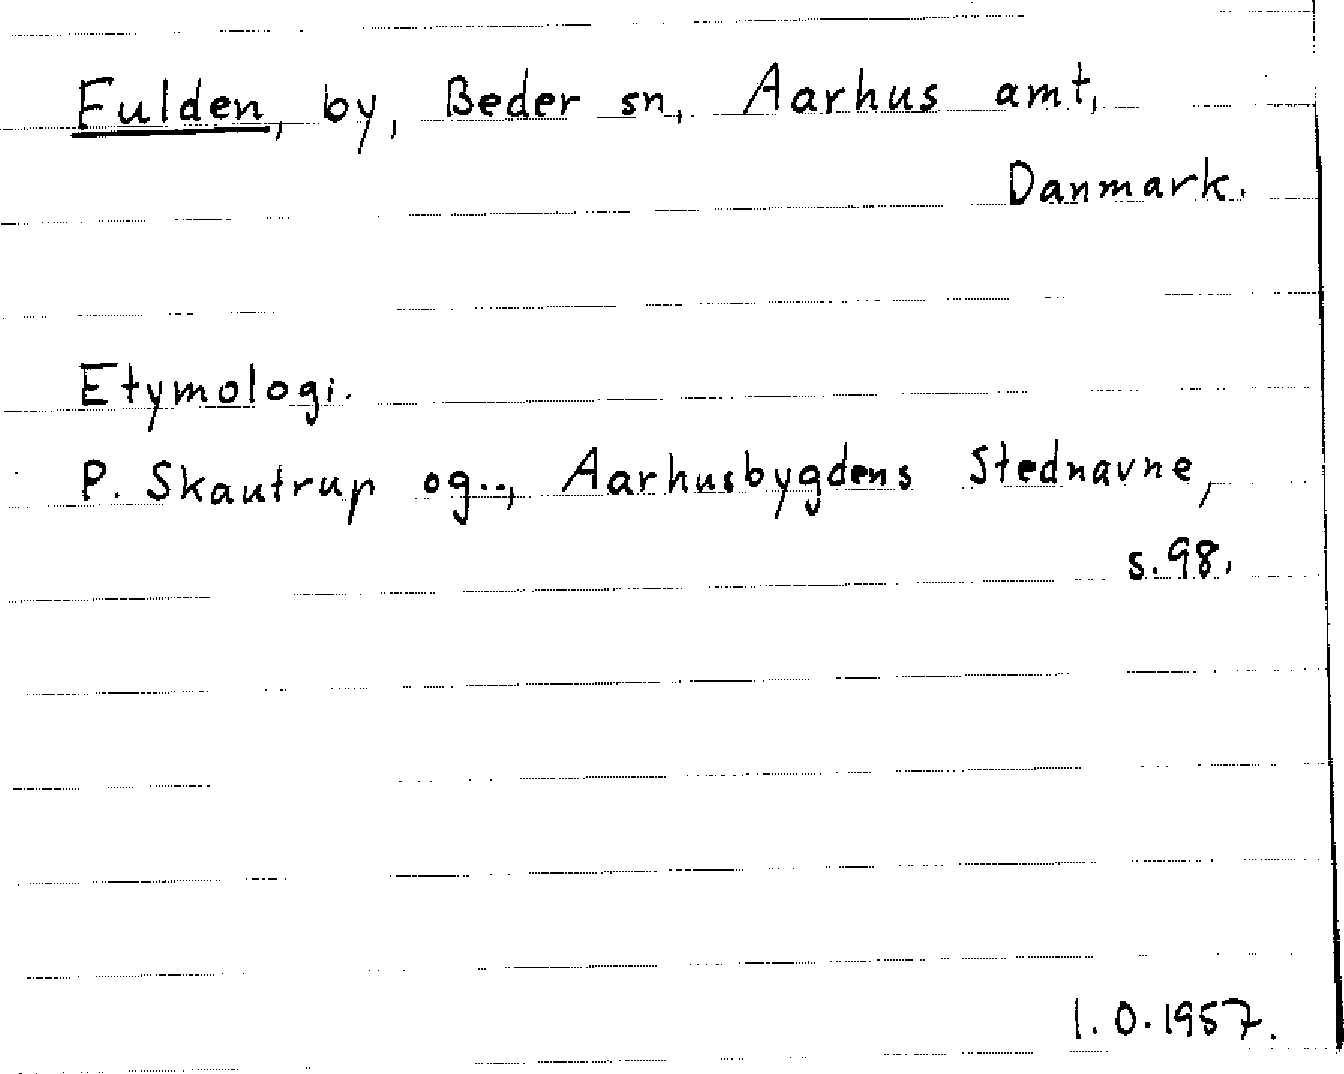 Fulden, by, Beder sn, Aarhus amt,
Danmark.
Etymologi.
P. Skautrup og.., Aarhusbygdens Stednavne,
s. 98.
I. O. 1957.